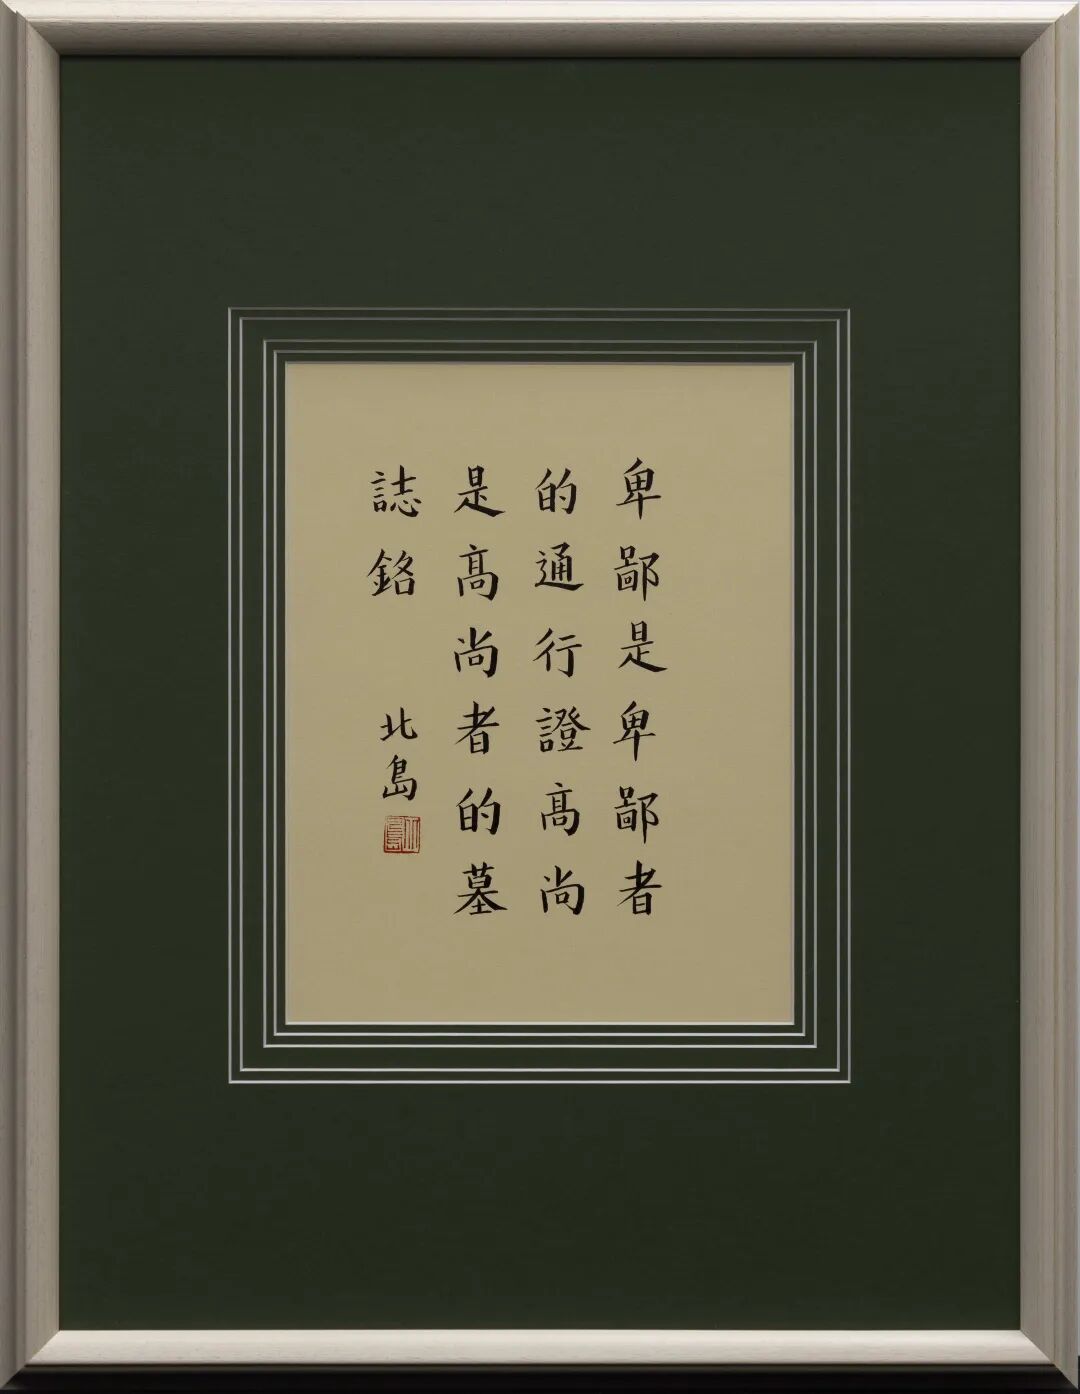 卑鄙是卑鄙者
的通行證髙尚
是髙尚者的墓
誌銘
北島
北島